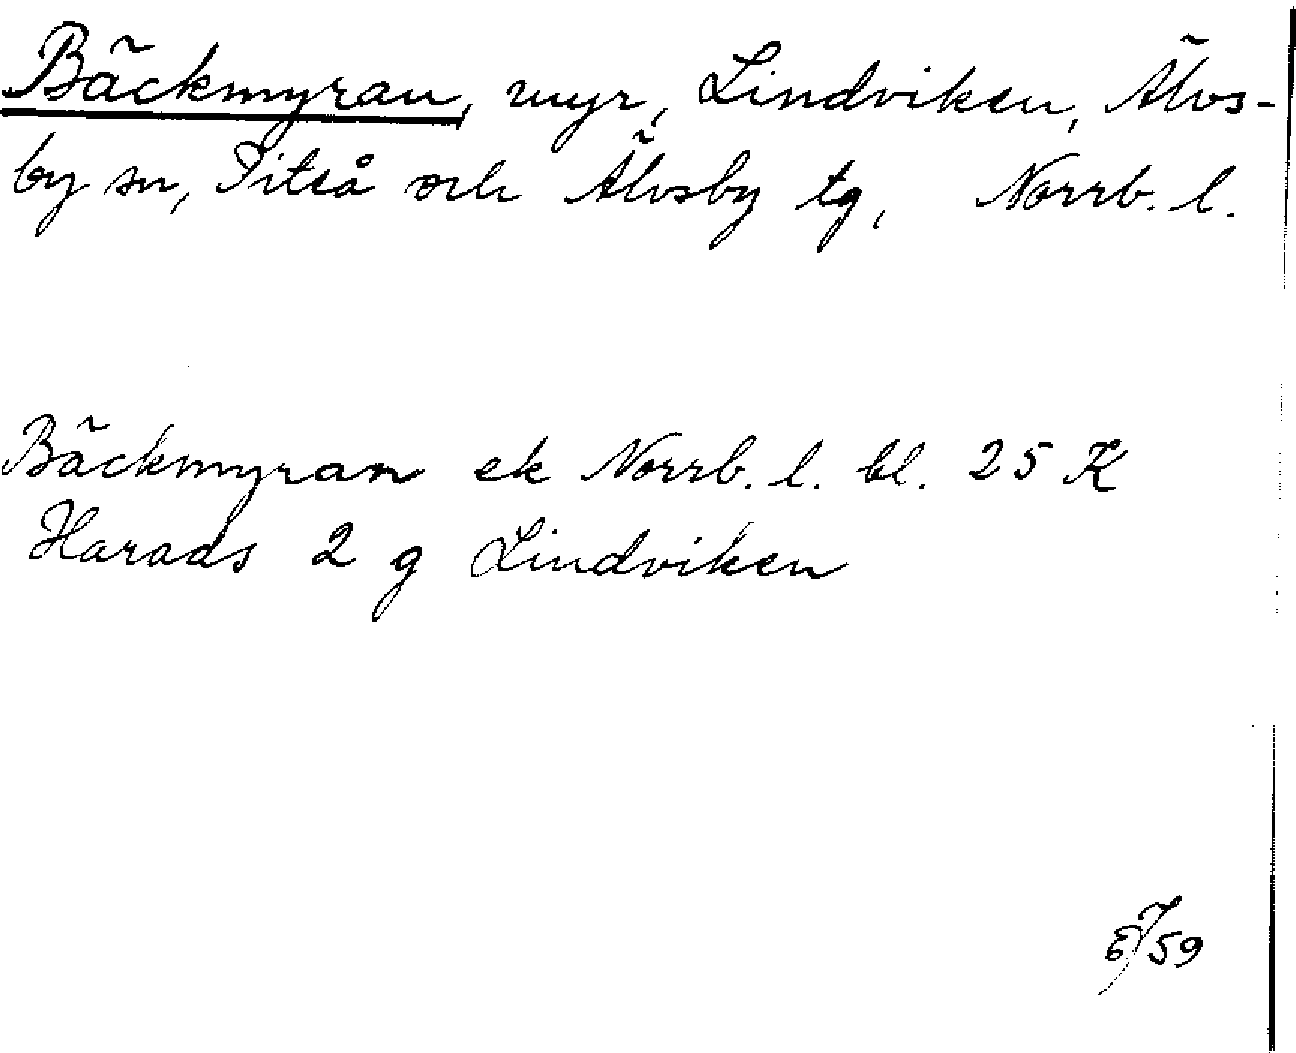 Bäckmyran, myr, Lindviken, Älvs-
by sn, Piteå och Älvsby tg, Norrb. l.
Bäckmyran ek Norrb. l. bl. 25 K
Harads 2 g Lindviken